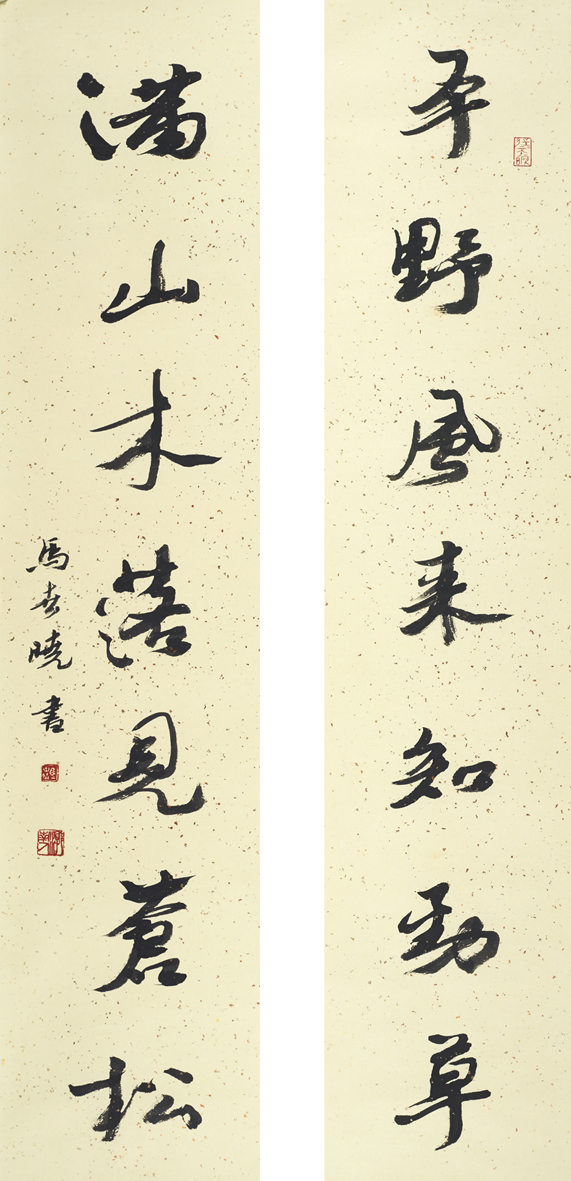 平野風来知勁草
满山木落見蒼松
馬世曉書